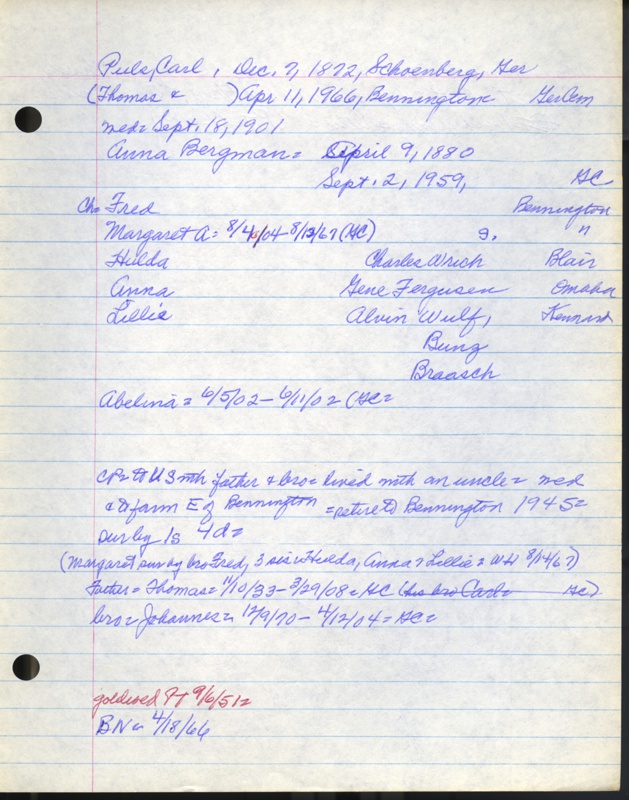 Puls, Carl, Dec. 7, 1872, Schoenberg, Ger
(Thomas & ) Apr 11, 1966, Bennington GerCem
wed= Sept. 18, 1901
Anna Bergman= April 9, 1880
Sept. 2, 1959, HC
Ch= Fred Bennington
Margaret A= 8/4/04-8/12/67 (HC) s. "
Hilda Charles Wrich Blair
Anna Gene Ferguson Omaha
Lillie Alvin Wulf, Kennard
Bunz
Braasch
Abelina= 6/5/02-6/11/02 (HC=
to US with father & bro= lived with an uncle= wed
& to farm E of Bennington =retired Bennington 1945=
sur by 1s 4d=
(Margaret sur by bro Fred, 3 sis= Hilda, Anna & Lillie= WH 8/14/67)
Father= Thomas= 11/10/33-3/29/08= HC (his bro Carl= HC)
bro= Johannes= 12/9/70-4/12/04= HC=
goldwed 9/6/51=
BN= 4/18/66